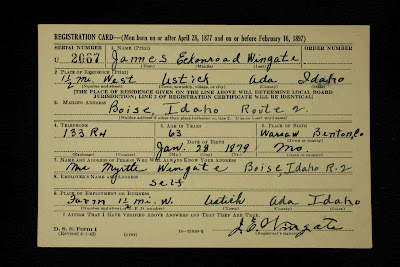 REGISTRATION CARD—(Men born on or after April 28, 1877 and on or before February 16, 1897)
SERIAL NUMBER 1. NAME (Print) ORDER NUMBER
U 2667 James Eckonroad Wingate
(First) (Middle) (Last)
2. PLACE OF RESIDENCE (Print)
1½ mi. West Ustick Ada Idaho
(Number and street) (Town, township, village, or city) (County) (State)
[THE PLACE OF RESIDENCE GIVEN ON THE LINE ABOVE WILL DETERMINE LOCAL BOARD
JURISDICTION; LINE 2 OF REGISTRATION CERTIFICATE WILL BE IDENTICAL]
3. MAILING ADDRESS
Boise, Idaho Route 2.
[Mailing address if other than place indicated on line 2. If same insert word same]
4. TELEPHONE 5. AGE IN YEARS 6. PLACE OF BIRTH
133 R4 63 Warsaw Benton, Co
DATE OF BIRTH (Town or county)
Jan. 28 1879 Mo.
(Exchange) (Number) (Mo.) (Day) (Yr.) (State or country)
7. NAME AND ADDRESS OF PERSON WHO WILL ALWAYS KNOW YOUR ADDRESS
Mrs Myrtle Wingate Boise, Idaho R-2
8. EMPLOYER'S NAME AND ADDRESS
Self
9. PLACE OF EMPLOYMENT OR BUSINESS
Farm 1½ mi. W. Ustick Ada Idaho
(Number and street or R. F. D. number) (Town) (County) (State)
I AFFIRM THAT I HAVE VERIFIED ABOVE ANSWERS AND THAT THEY ARE TRUE.
D. S. S. Form 1
(Revised 4-1-42) (over)
J. E. Wingate
(Registrant's signature)